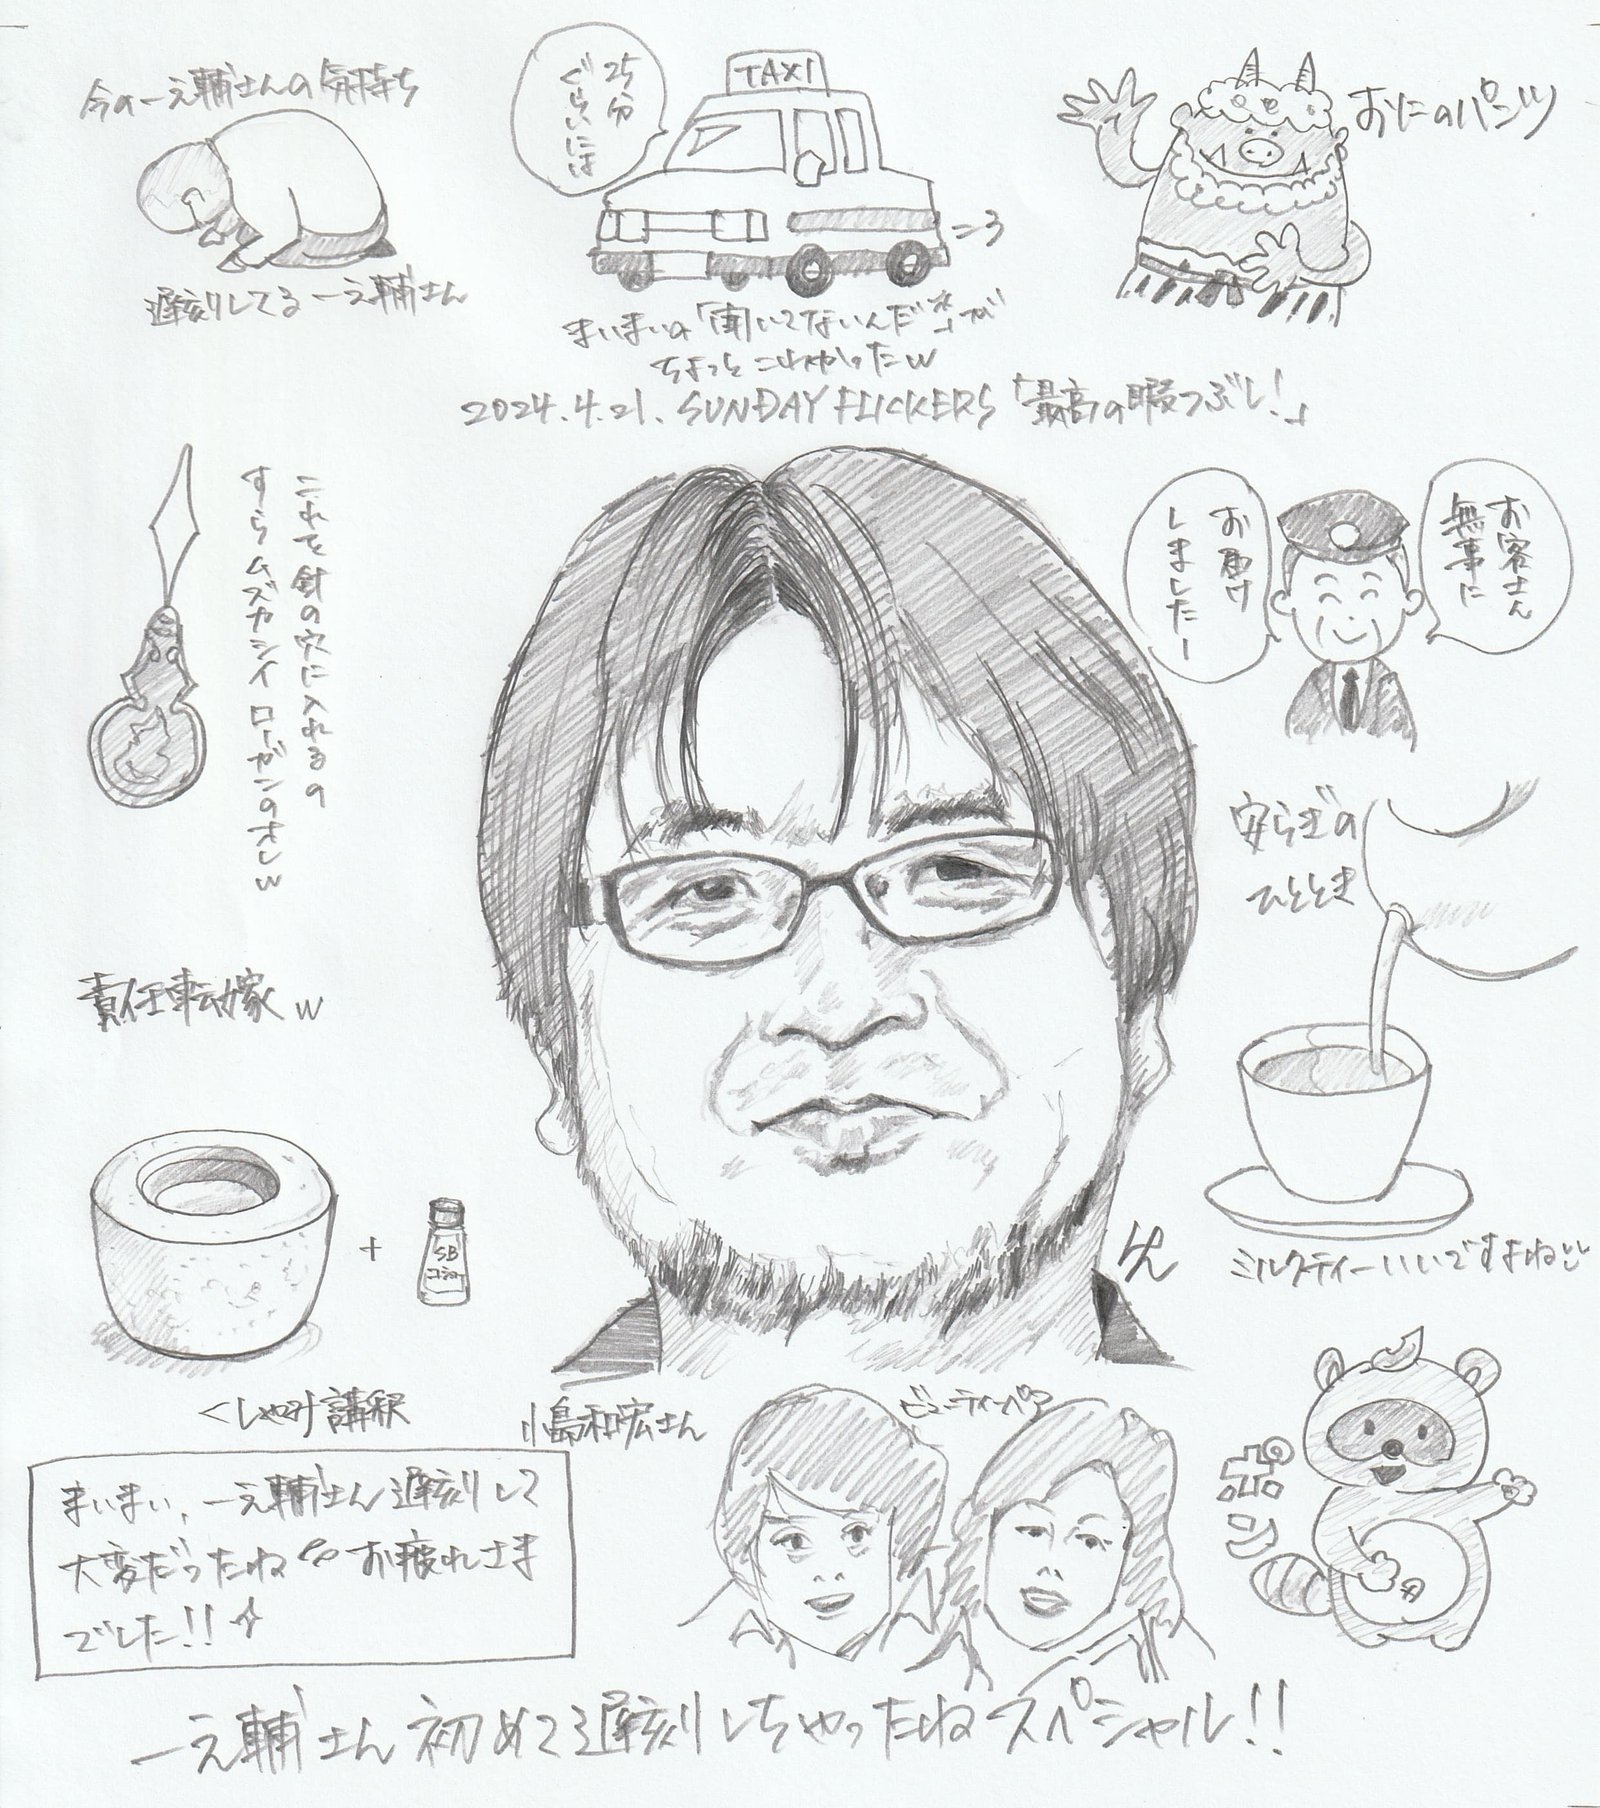 今の一之輔さんの気持ち
遅刻してる一之輔さん
25分
ぐらいには
TAXI
まいまいの「聞いてないんだ
ちょっとこわかったw
おにのパンツ
2024.4.21. SUNDAY FLICKERS「最高の暇つぶし!」
これを針の穴に入れるの
すらムズカシイローガンのオレw
お客さん
無事に
お届け
しましたー
安らぎの
ひととき
責任転嫁w
+
SB
コショー
くしゃみ講釈
小島和宏さん
ビューティーペア
ミルクティーいいですよね
まいまい、一之輔さん遅刻して
大変だったね お疲れさま
でした!!
ポンポコ
一之輔さん初めて遅刻しちゃったねスペシャル!!